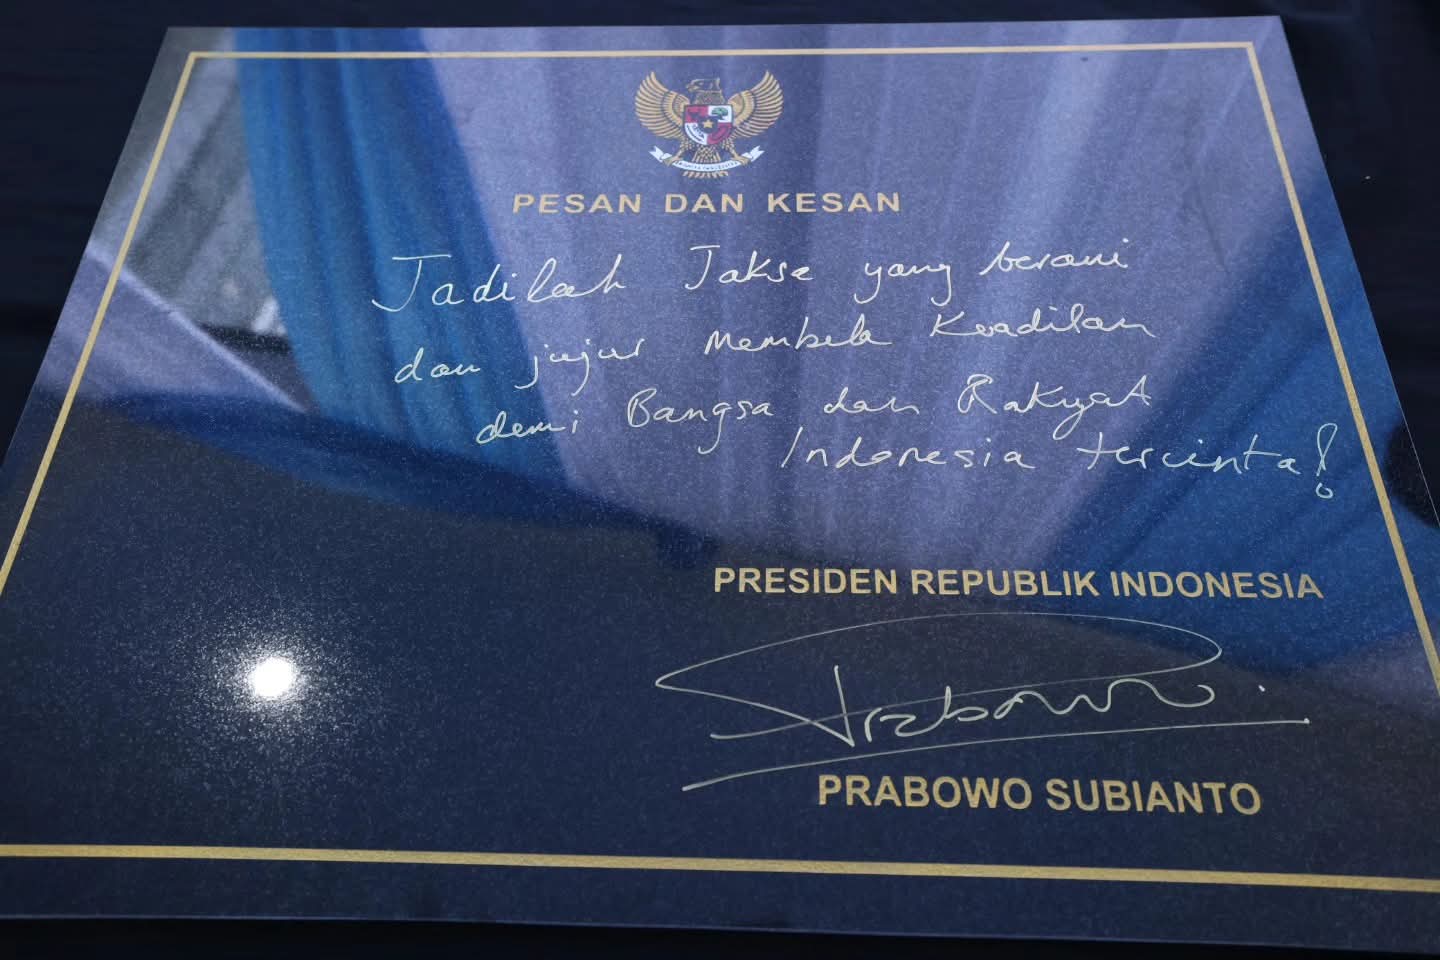 PESAN DAN KESAN
Jadilah Jaksa yang berani
dan jujur membela Keadilan
demi Bangsa dan Rakyat
Indonesia tercinta!
PRESIDEN REPUBLIK INDONESIA
Prabowo
PRABOWO SUBIANTO